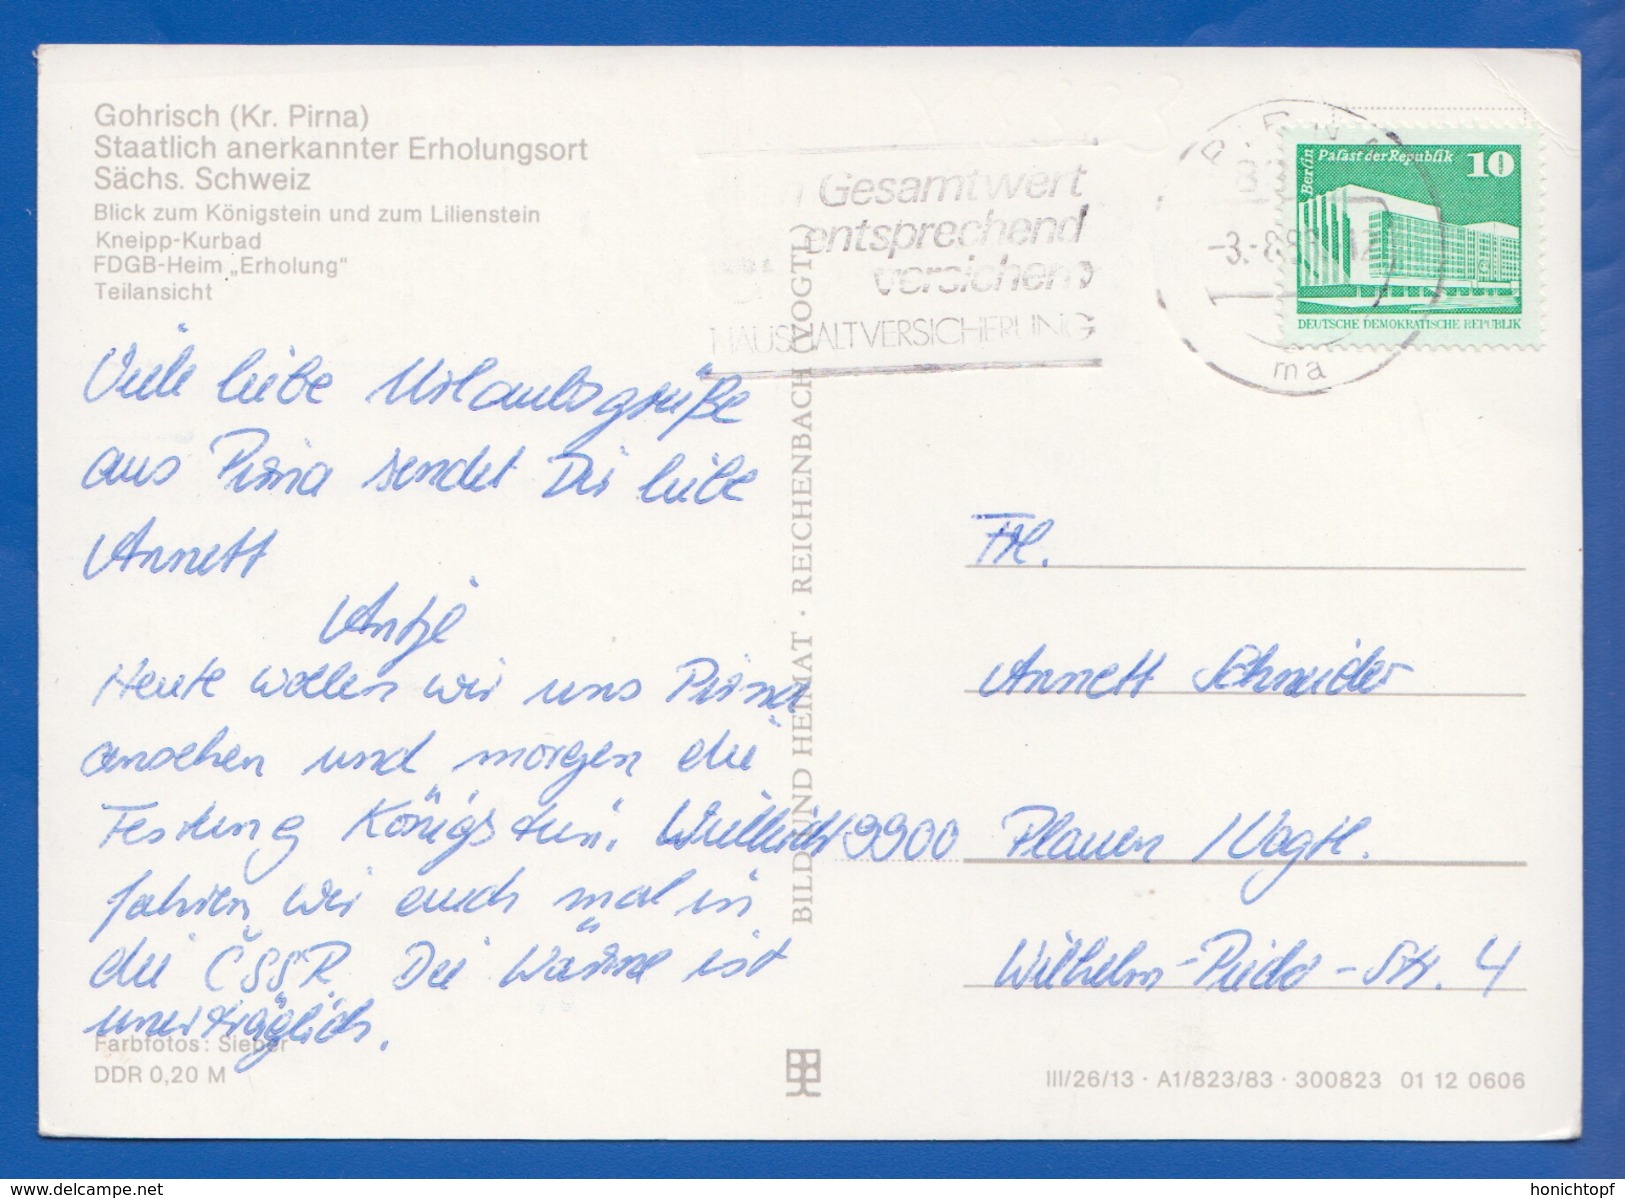 Gohrisch (Kr. Pirna)
Staatlich anerkannter Erholungsort
Sächs. Schweiz
Blick zum Königstein und zum Lilienstein
Kneipp-Kurbad
FDGB-Heim „Erholung"
Teilansicht
Viele liebe Urlaubsgrüße
aus Pirna sendet Dir liebe
Annett
Antje
Heute wollen wir uns Pirna
ansehen und morgen die
Festung Königstein. Vielleicht
fahren wir auch mal in
die ČSSR. Die Wärme ist
unerträglich.
Farbfotos: Sieber
DDR 0,20 M
BILD UND HEIMAT · REICHENBACH (VOGTL)
Gesamtwert
entsprechend
versichern?
HAUSHALTVERSICHERUNG
PIRNA
-3.-8.83
ma
Berlin
Palast der Republik
10
DEUTSCHE DEMOKRATISCHE REPUBLIK
Frl.
Annett Schneider
9900 Plauen /Vogtl.
Wilhelm-Pieck-Str. 4
III/26/13 · A1/823/83 · 300823 01 12 0606
www.delcampe.net
honichtopf